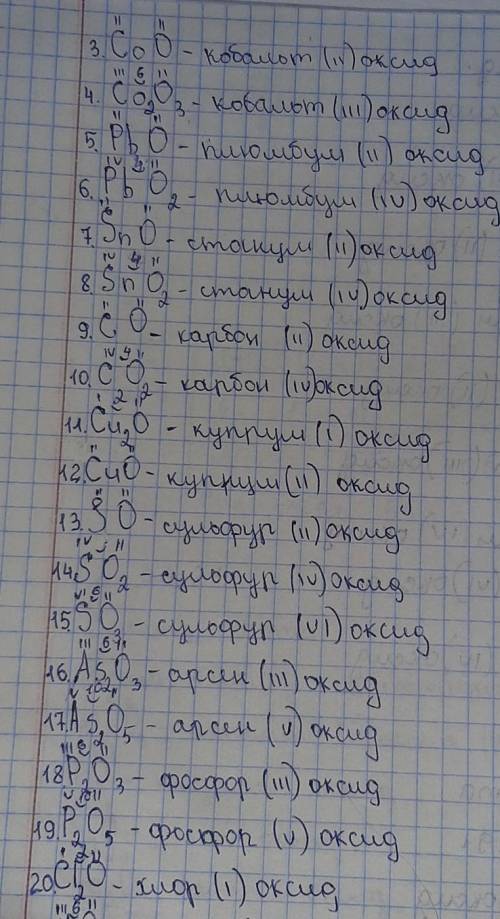 3. CoO - кобальт (II) оксид
4. Co2O3 - кобальт (III) оксид
5. PbO - плюмбум (II) оксид
6. PbO2 - плюмбум (IV) оксид
7. SnO - станум (II) оксид
8. SnO2 - станум (IV) оксид
9. CO - карбон (II) оксид
10. CO2 - карбон (IV) оксид
11. Cu2O - купрум (I) оксид
12. CuO - купрум (II) оксид
13. SO - сульфур (II) оксид
14. SO2 - сульфур (IV) оксид
15. SO3 - сульфур (VI) оксид
16. As2O3 - арсен (III) оксид
17. As2O5 - арсен (V) оксид
18 P2O3 - фосфор (III) оксид
19. P2O5 - фосфор (V) оксид
20. Cl2O - хлор (I) оксид